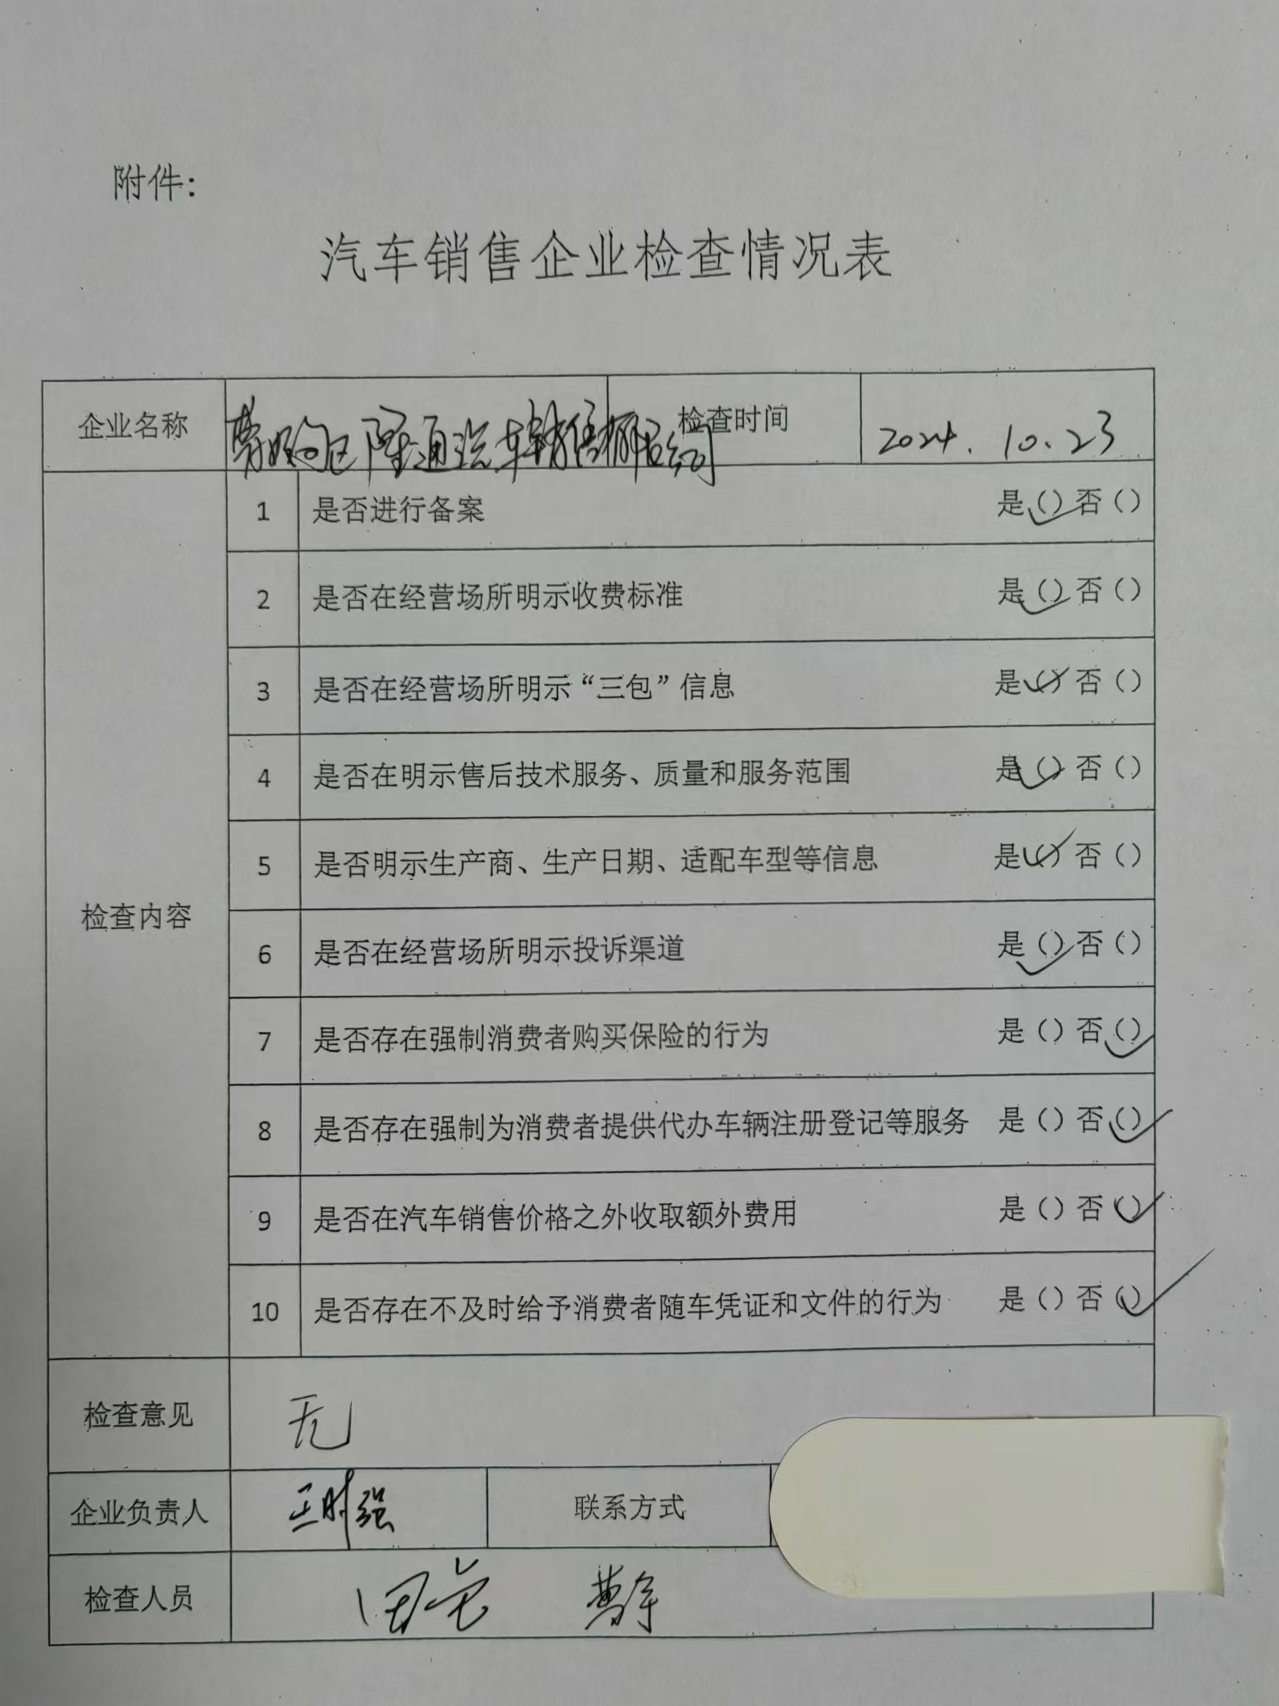 附件:
汽车销售企业检查情况表
企业名称 区隆通汽车销售有限公司 检查时间 2024.10.23
检查内容
1 是否进行备案 是(✓)否()
2 是否在经营场所明示收费标准 是(✓)否()
3 是否在经营场所明示“三包”信息 是(✓)否()
4 是否在明示售后技术服务、质量和服务范围 是(✓)否()
5 是否明示生产商、生产日期、适配车型等信息 是(✓)否()
6 是否在经营场所明示投诉渠道 是(✓)否()
7 是否存在强制消费者购买保险的行为 是()否(✓)
8 是否存在强制为消费者提供代办车辆注册登记等服务 是()否(✓)
9 是否在汽车销售价格之外收取额外费用 是()否(✓)
10 是否存在不及时给予消费者随车凭证和文件的行为 是()否(✓)
检查意见 无
企业负责人 强 联系方式
检查人员 田